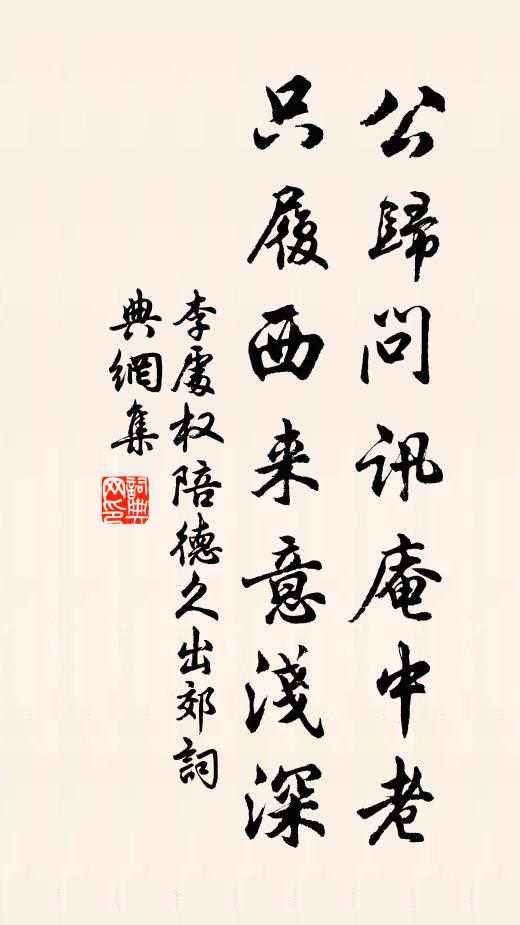 公歸問訊庵中老
只履西来意淺深
李處权陪德久出郊詞
典網集
詞典網印